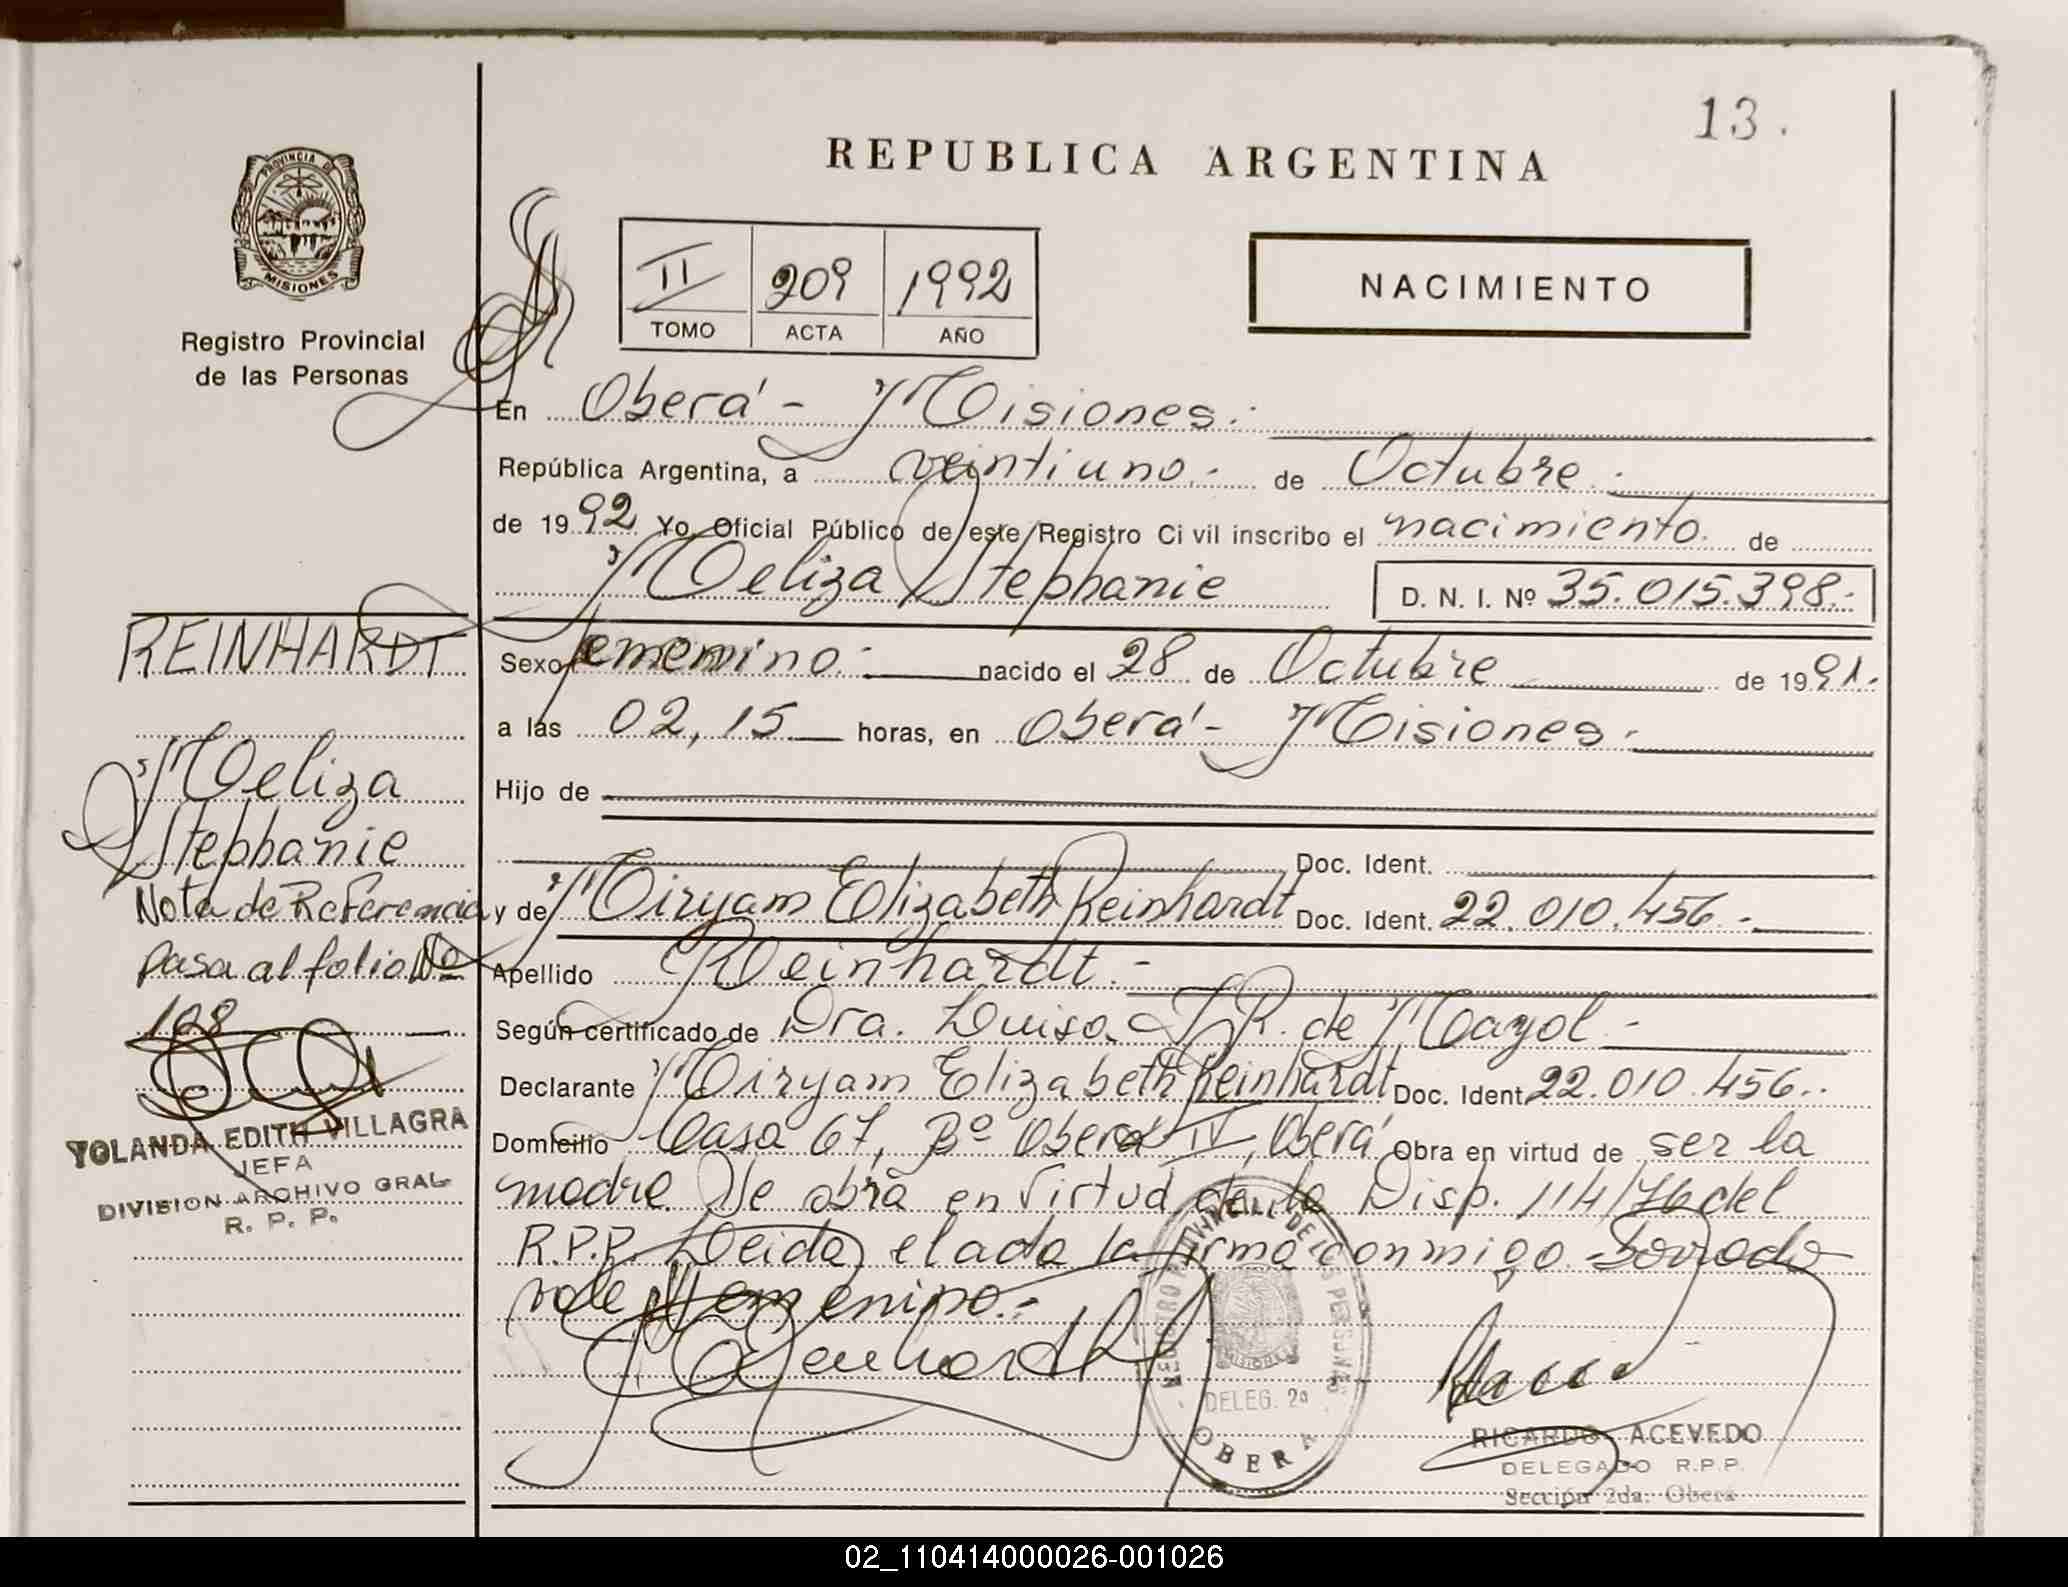 13.
REPUBLICA ARGENTINA
PROVINCIA DE
MISIONES
Registro Provincial
de las Personas
II 209 1992
TOMO ACTA AÑO
NACIMIENTO
En Oberá - Misiones.
República Argentina, a veintiuno.- de Octubre
de 1992 Yo Oficial Público de este Registro Civil inscribo el nacimiento. de
Meliza Stephanie D. N. I. Nº 35.015.398.-
Sexo femenino.- nacido el 28 de Octubre de 1991.
a las 02,15 horas, en Oberá - Misiones.
Hijo de
Doc. Ident.
y de Miryam Elizabeth Reinhardt Doc. Ident. 22.010.456.-
Apellido Reinhardt.-
Según certificado de Dra. Luisa R. de Mayol -
Declarante Miryam Elizabeth Reinhardt Doc. Ident. 22.010.456..
Domicilio Casa 67, Bº Oberá IV, Oberá Obra en virtud de ser la
madre. Se obra en virtud de la Disp. 114/76 del
R.P.P. Leida el acta la firma conmigo. Borrado
vale femenino.-
REINHARDT
Meliza
Stephanie
Nota de Referencia
pasa al folio Nº
198
YOLANDA EDITH VILLAGRA
JEFA
DIVISION ARCHIVO GRAL
R. P. P.
Reinhardt
REGISTRO PROVINCIAL DE LAS PERSONAS
MISIONES
DELEG. 2a
OBERA
RICARDO ACEVEDO
DELEGADO R.P.P.
Sección 2da. Oberá
02_110414000026-001026